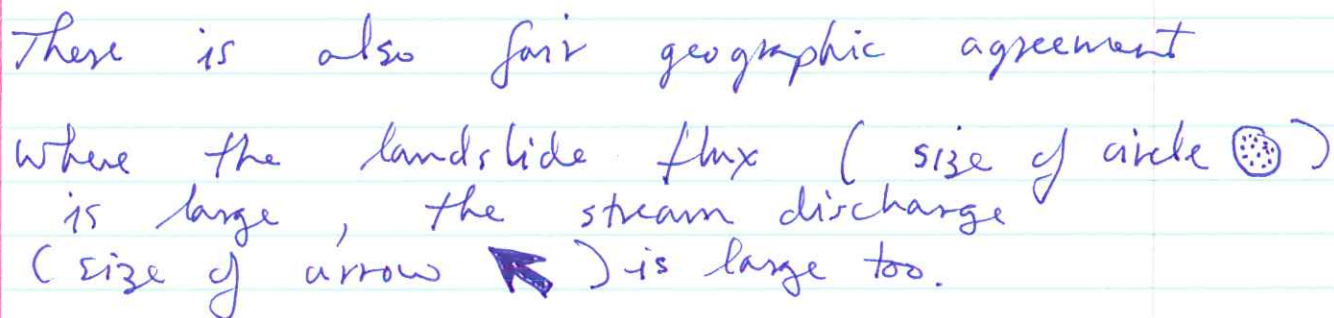 There is also fair geographic agreement
where the landslide flux ( size of circle )
is large , the stream discharge
( size of arrow ) is large too.